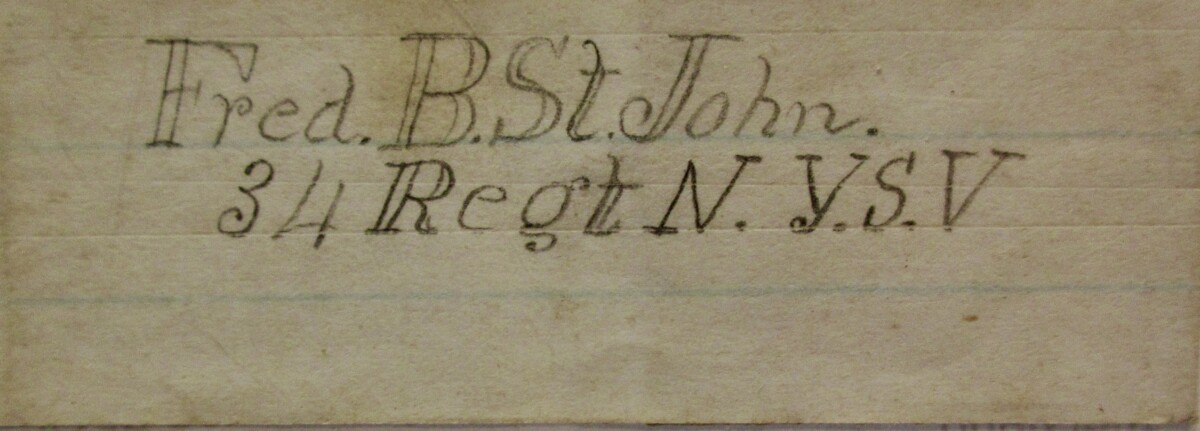 Fred. B. St. John.
34 Regt N. Y. S. V